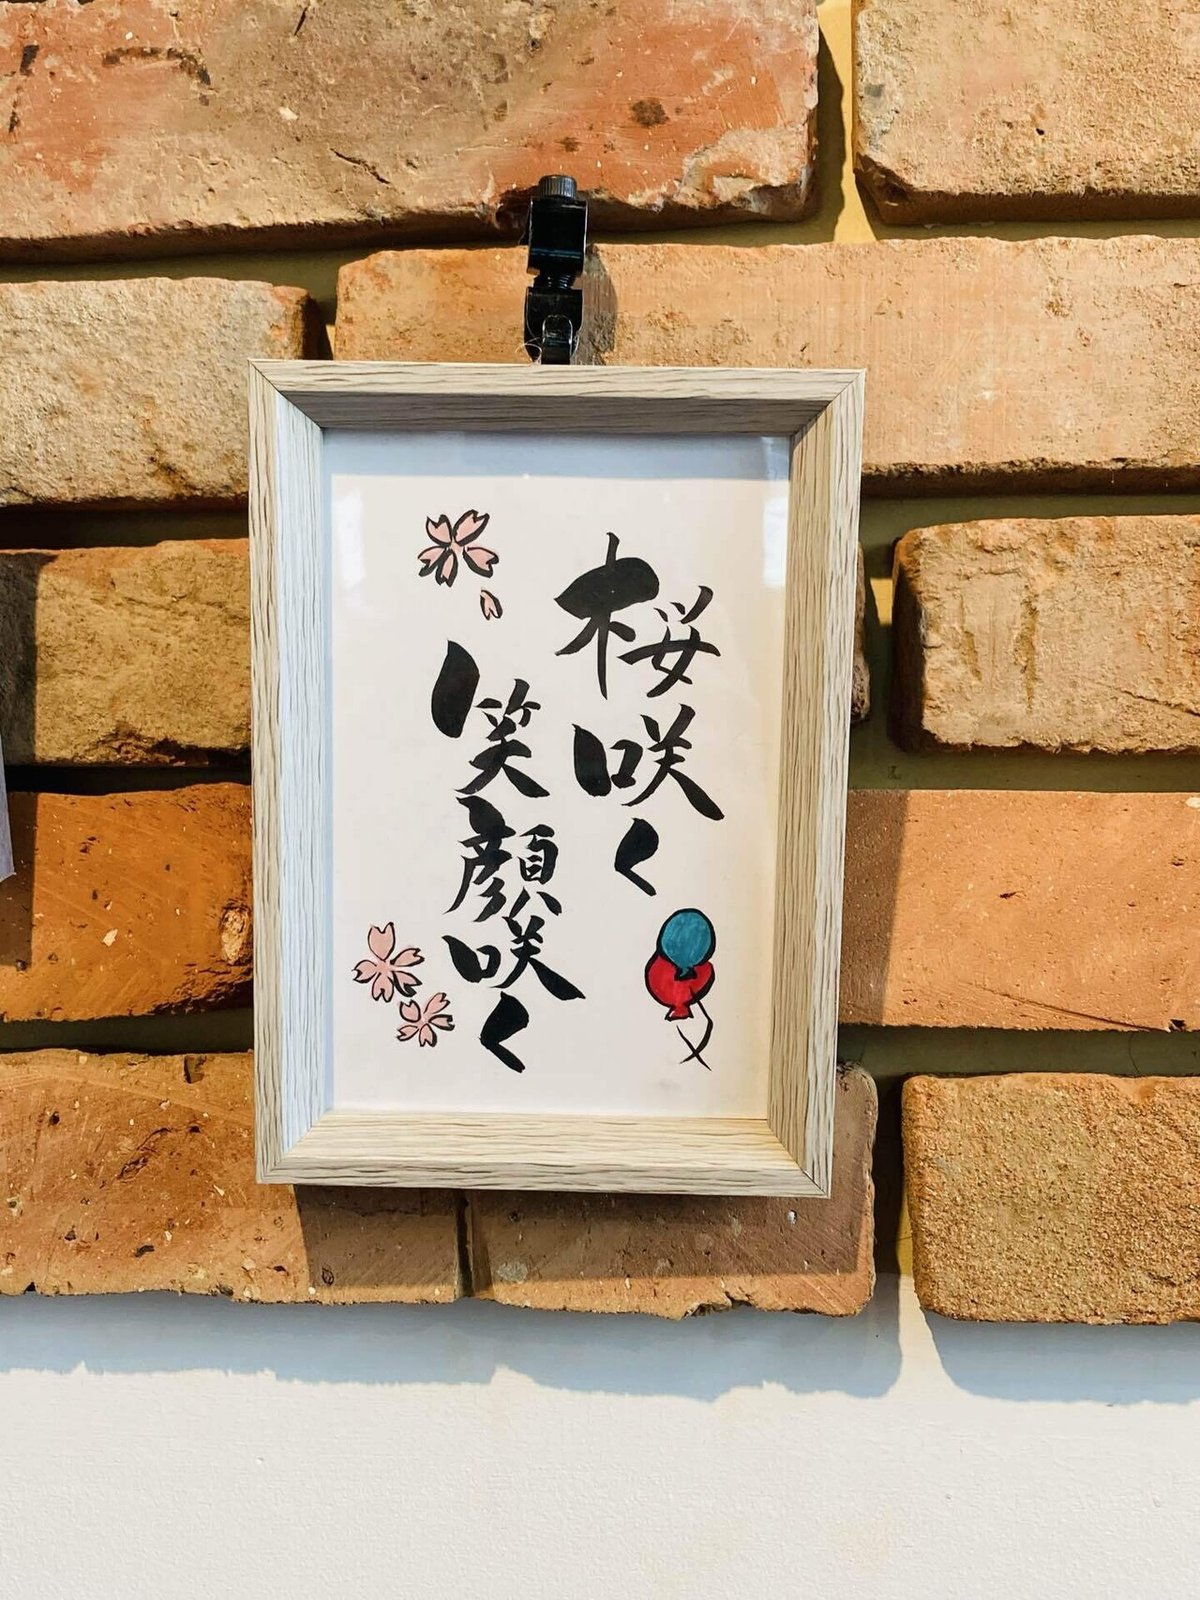 桜咲く
笑顔咲く